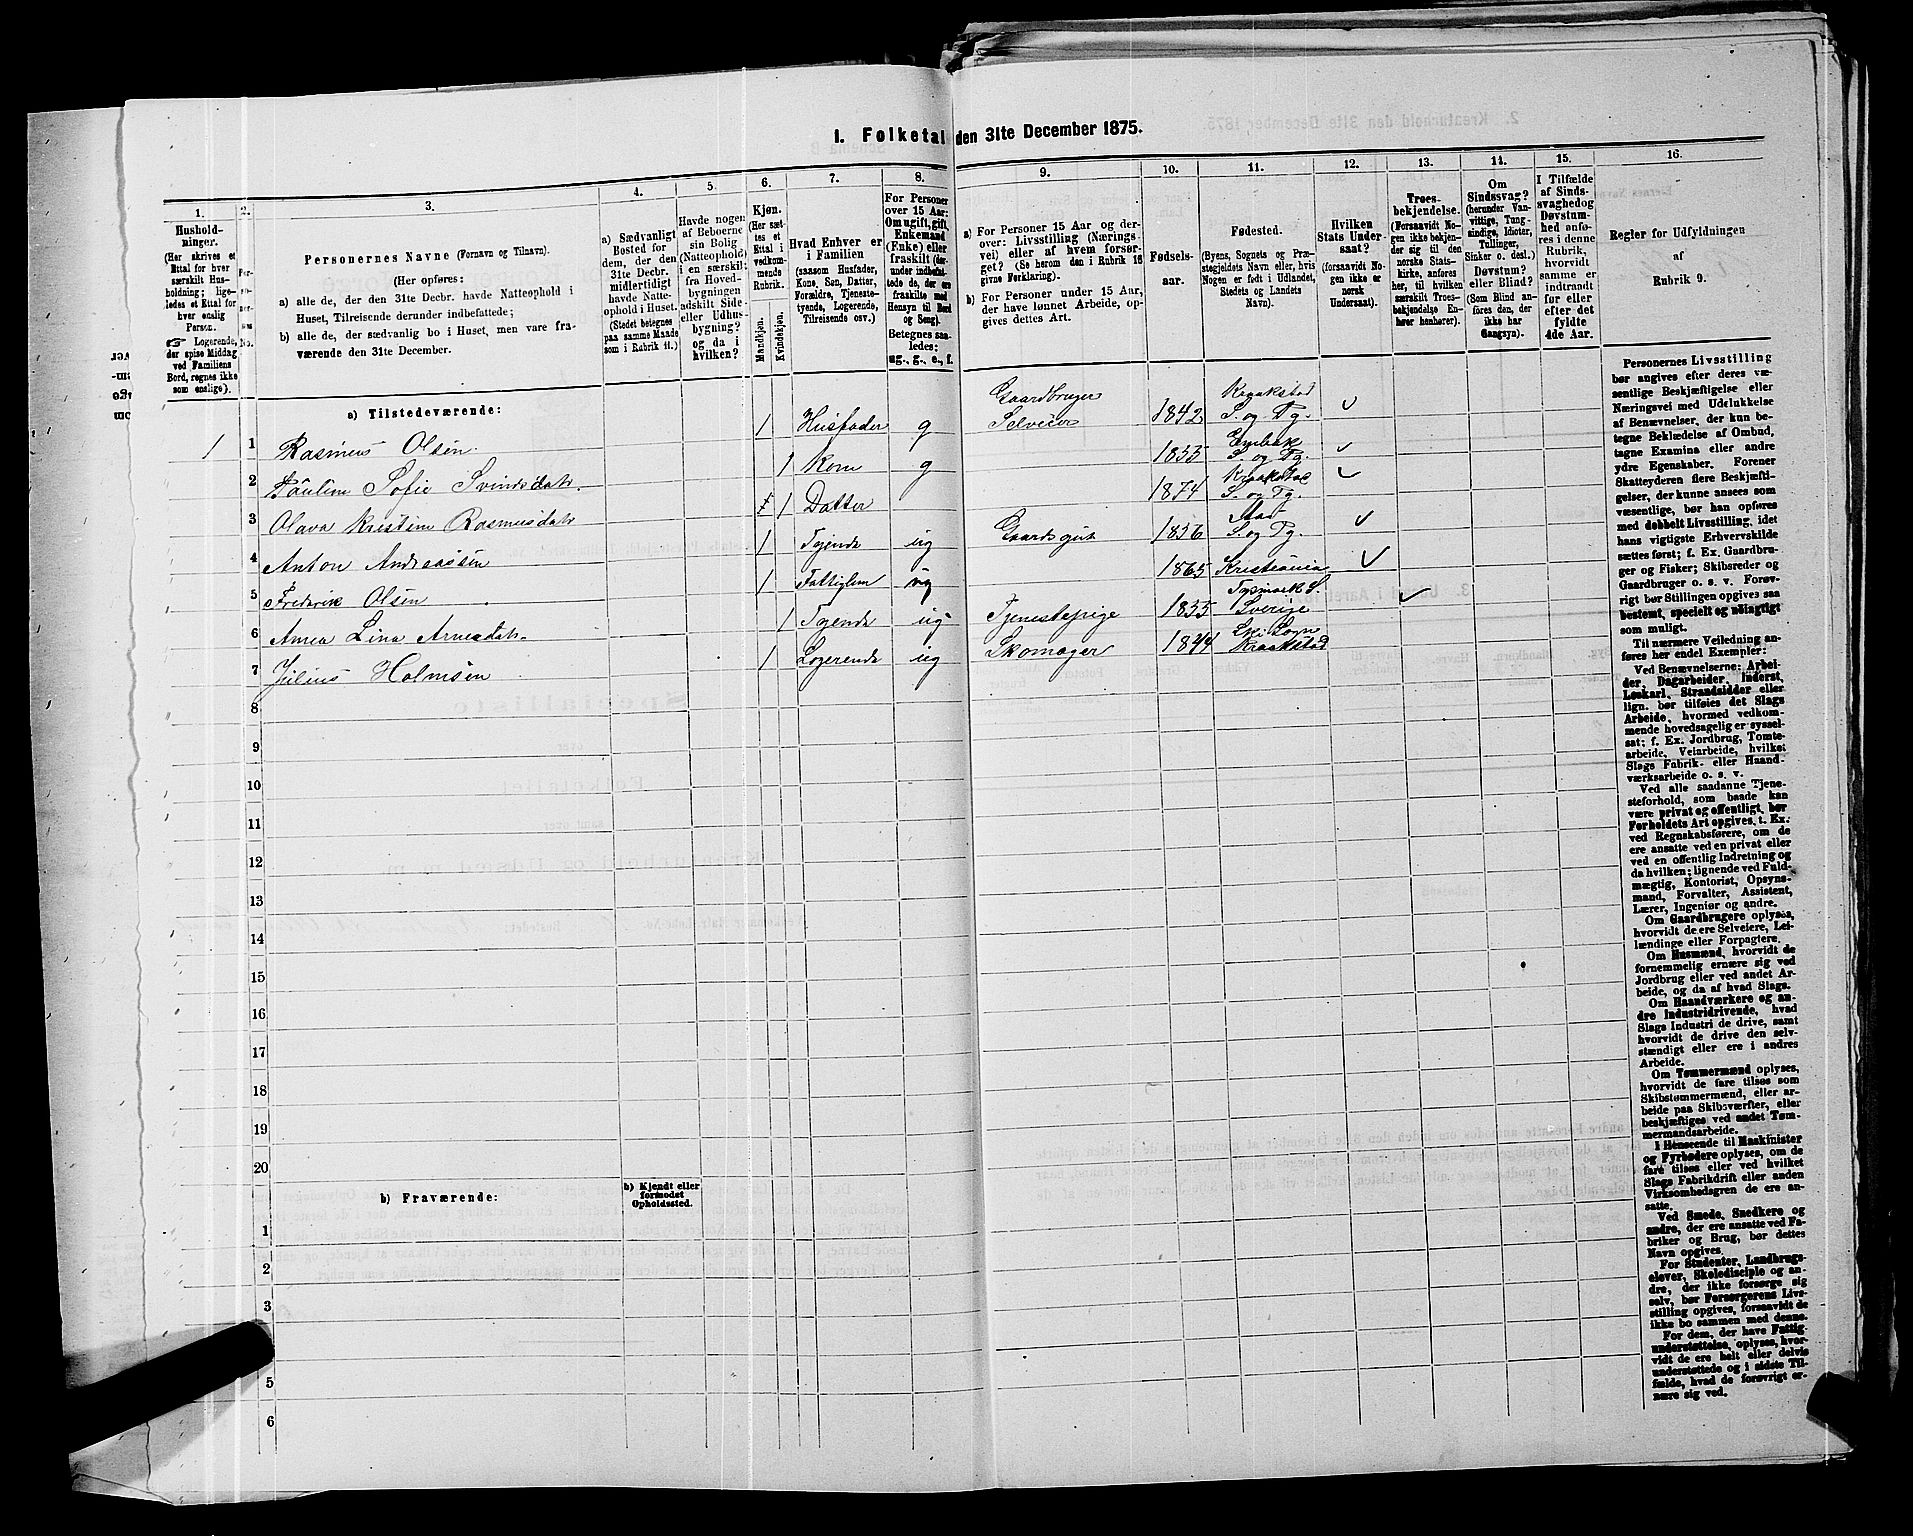 1. Folketal den 31te December 1875.
1.
2.
3.
4.
5.
6.
7.
8.
9.
10.
11.
12.
13.
14.
15.
16.
Hushold-
ninger.
(Her skrives et
Ettal for hver
særskilt Hus-
holdning; lige-
ledes et Ettal for
hver enslig
Person.
☞ Logerende,
der spise Middag
ved Familiens
Bord, regnes ikke
som enslige).
Personernes Navne (Fornavn og Tilnavn).
(Her opføres:
a) alle de, der den 31te Decbr. havde Natteophold i
Huset, Tilreisende derunder indbefattede;
b) alle de, der sædvanlig bo i Huset, men vare fra-
værende den 31te December.
a) Sædvanligt
Bosted for
dem, der den
31te Decbr.
midlertidigt
havde Natte-
ophold i Huset.
(Stedet betegnes
paa samme Maade
som i Rubrik 11.)
Havde nogen
af Beboerne
sin Bolig
(Natteophold)
i en særskilt
fra Hoved-
bygningen
adskilt Side-
eller Udhus-
bygning?
og da i
hvilken?
Kjøn.
(Her sæt-
tes et
Ettal i
vedkom-
mende
Rubrik.
Mandkjøn.
Kvindekjøn.
Hvad Enhver er
i Familien
(saasom Husfader,
Kone, Søn, Datter,
Forældre, Tjeneste-
tyende, Logerende,
Tilreisende osv.)
For Personer
over 15 Aar:
Om ugift, gift,
Enkemand
(Enke) eller
fraskilt (der-
under indbefat-
tede de, der ere
fraskilte med
Hensyn til Bord
og Seng).
Betegnes saa-
ledes:
ug., g., e., f.
a) For Personer 15 Aar og der-
over: Livsstilling (Nærings-
vei) eller af hvem forsør-
get? (Se herom den i Rubrik 16
givne Forklaring).
b) For Personer under 15 Aar,
der have lønnet Arbeide, op-
gives dettes Art.
Fødsels-
aar.
Fødested.
(Byens, Sognets og Præ-
stegjeldets Navn eller, hvis
Nogen er født i Udlandet,
Stedets og Landets
Navn).
Hvilken
Stats Under-
saat?
(forsaavidt No-
gen ikke er
norsk
Undersaat).
Troes-
bekjendelse.
(Forsaavidt No-
gen ikke bekjen-
der sig til den
norske Stats-
kirke, anføres
her, til hvilken
særskilt Troes-
bekjendelse En-
hver henhører).
Om
Sindssvag?
(herunder Van-
vittige, Tung-
sindige, Idioter,
Tullinger,
Sinker o. desl.)
Døvstum?
eller Blind?
(Som Blind an-
føres den, der
ikke har
Gangsyn).
I Tilfælde
af Sinds-
svaghed og
Døvstum-
hed anfø-
res i denne
Rubrik,
hvorvidt
samme er
indtraadt
før eller
efter det
fyldte
4de Aar.
Regler for Udfyldningen
af
Rubrik 9.
a) Tilstedeværende:
1 1 Rasmus Olsen. 1 Husfader g Gaardbruger Selveier 1842 Kraakstad S. og Pg.
2 Pauline Sofie Svendsdatr. 1 Kone g 1855 S. og Pg.
3 Olava Kristine Rasmusdatr 1 Datter 1874 Kraakstad S. og Pg.
4 Anton Andreassen 1 Tyende ug Gaardsgut 1856 S. og Pg.
5 Frederik Olsen 1 Fattiglem ug 1865 Kristiania
6 Lina 1 Tyende ug Tjenestepige 1855 Sverige
7 Julius Holmsen 1 Logerende ug Skomager 1844 Ski Sogn Kraakstad
8
9
10
11
12
13
14
15
16
17
18
19
20
b) Fraværende:
b) Kjendt eller
formodet
Opholdssted.
1
2
3
5
6
Personernes Livsstilling
bør angives efter deres væ-
sentlige Beskjæftigelse eller
Næringsvei med Udelukkelse
af Benævnelser, der kun be-
tegne Beklædelse af Ombud,
tagne Examina eller andre
ydre Egenskaber. Forener
Skatteyderen flere Beskjæfti-
gelser, der kunne ansees som
væsentlige, bør han opføres
med dobbelt Livsstilling, idet
hans vigtigste Erhvervskilde
sættes først; f. Ex. Gaardbru-
ger og Fisker; Skibsreder og
Gaardbruger o. s. v. Forøv-
rigt bør Stillingen opgives saa
bestemt, specielt og nøiagtigt
som muligt.
Til nærmere Veiledning an-
føres her endel Exempler:
Ved Benævnelserne: Arbei-
der, Dagarbeider, Inderst,
Løskarl, Strandsidder eller
lign. bør tilføies det Slags
Arbeide, hvormed vedkom-
mende hovedsagelig er syssel-
sat; f. Ex. Jordbrug, Tomte-
arbeide, Veiarbeide, hvilket
Slags Fabrik- eller Haand-
værksarbeide o. s. v.
Ved alle saadanne Tjene-
steforhold, som baade kan
være privat og offentligt, bør
Forholdets Art opgives, t. Ex.
ved Regnskabsførere, om de
ere ansatte ved en privat eller
ved en offentlig Indretning og
da hvilken; lignende ved Fuld-
mægtig, Kontorist, Opsyns-
mand, Forvalter, Assistent,
Lærer, Ingeniør og andre.
Om Gaardbrugere oplyses,
hvorvidt de ere Selveiere, Lei-
lændinge eller Forpagtere.
Om Husmænd, hvorvidt de
fornemmelig ernære sig ved
Jordbrug eller ved andet Ar-
beide, og da af hvad Slags.
Om Haandværkere og an-
dre Industridrivende, hvad
Slags Industri de drive, samt
hvorvidt de drive den selv-
stændigt eller ere i andres
Arbeide.
Om Tømmermænd oplyses,
hvorvidt de fare tilsøs som
Skibstømmermænd, eller ar-
beide paa Skibsværfter, eller
beskjæftiges ved andet Tøm-
mermandsarbeide.
I Henseende til Maskinister
og Fyrbødere oplyses, om de
fare tilsøs eller ved hvilket
Slags Fabrikdrift eller anden
Virksomhedsgren de ere an-
satte.
Ved Smede, Snedkere og
andre, der ere ansatte ved Fa-
briker og Brug, bør dettes
Navn opgives.
For Studenter, Landbrugs-
elever, Skoledisciple og an-
dre, der ikke forsørge sig
selv, bør Forsørgerens Livs-
stilling opgives, forsaavidt de
ikke bo sammen med denne.
For dem, der have Fattig-
understøttelse, oplyses, hvor-
vidt de ere helt eller delvis
understøttede og i sidste Til-
fælde, hvad de forøvrigt er-
nære sig ved.